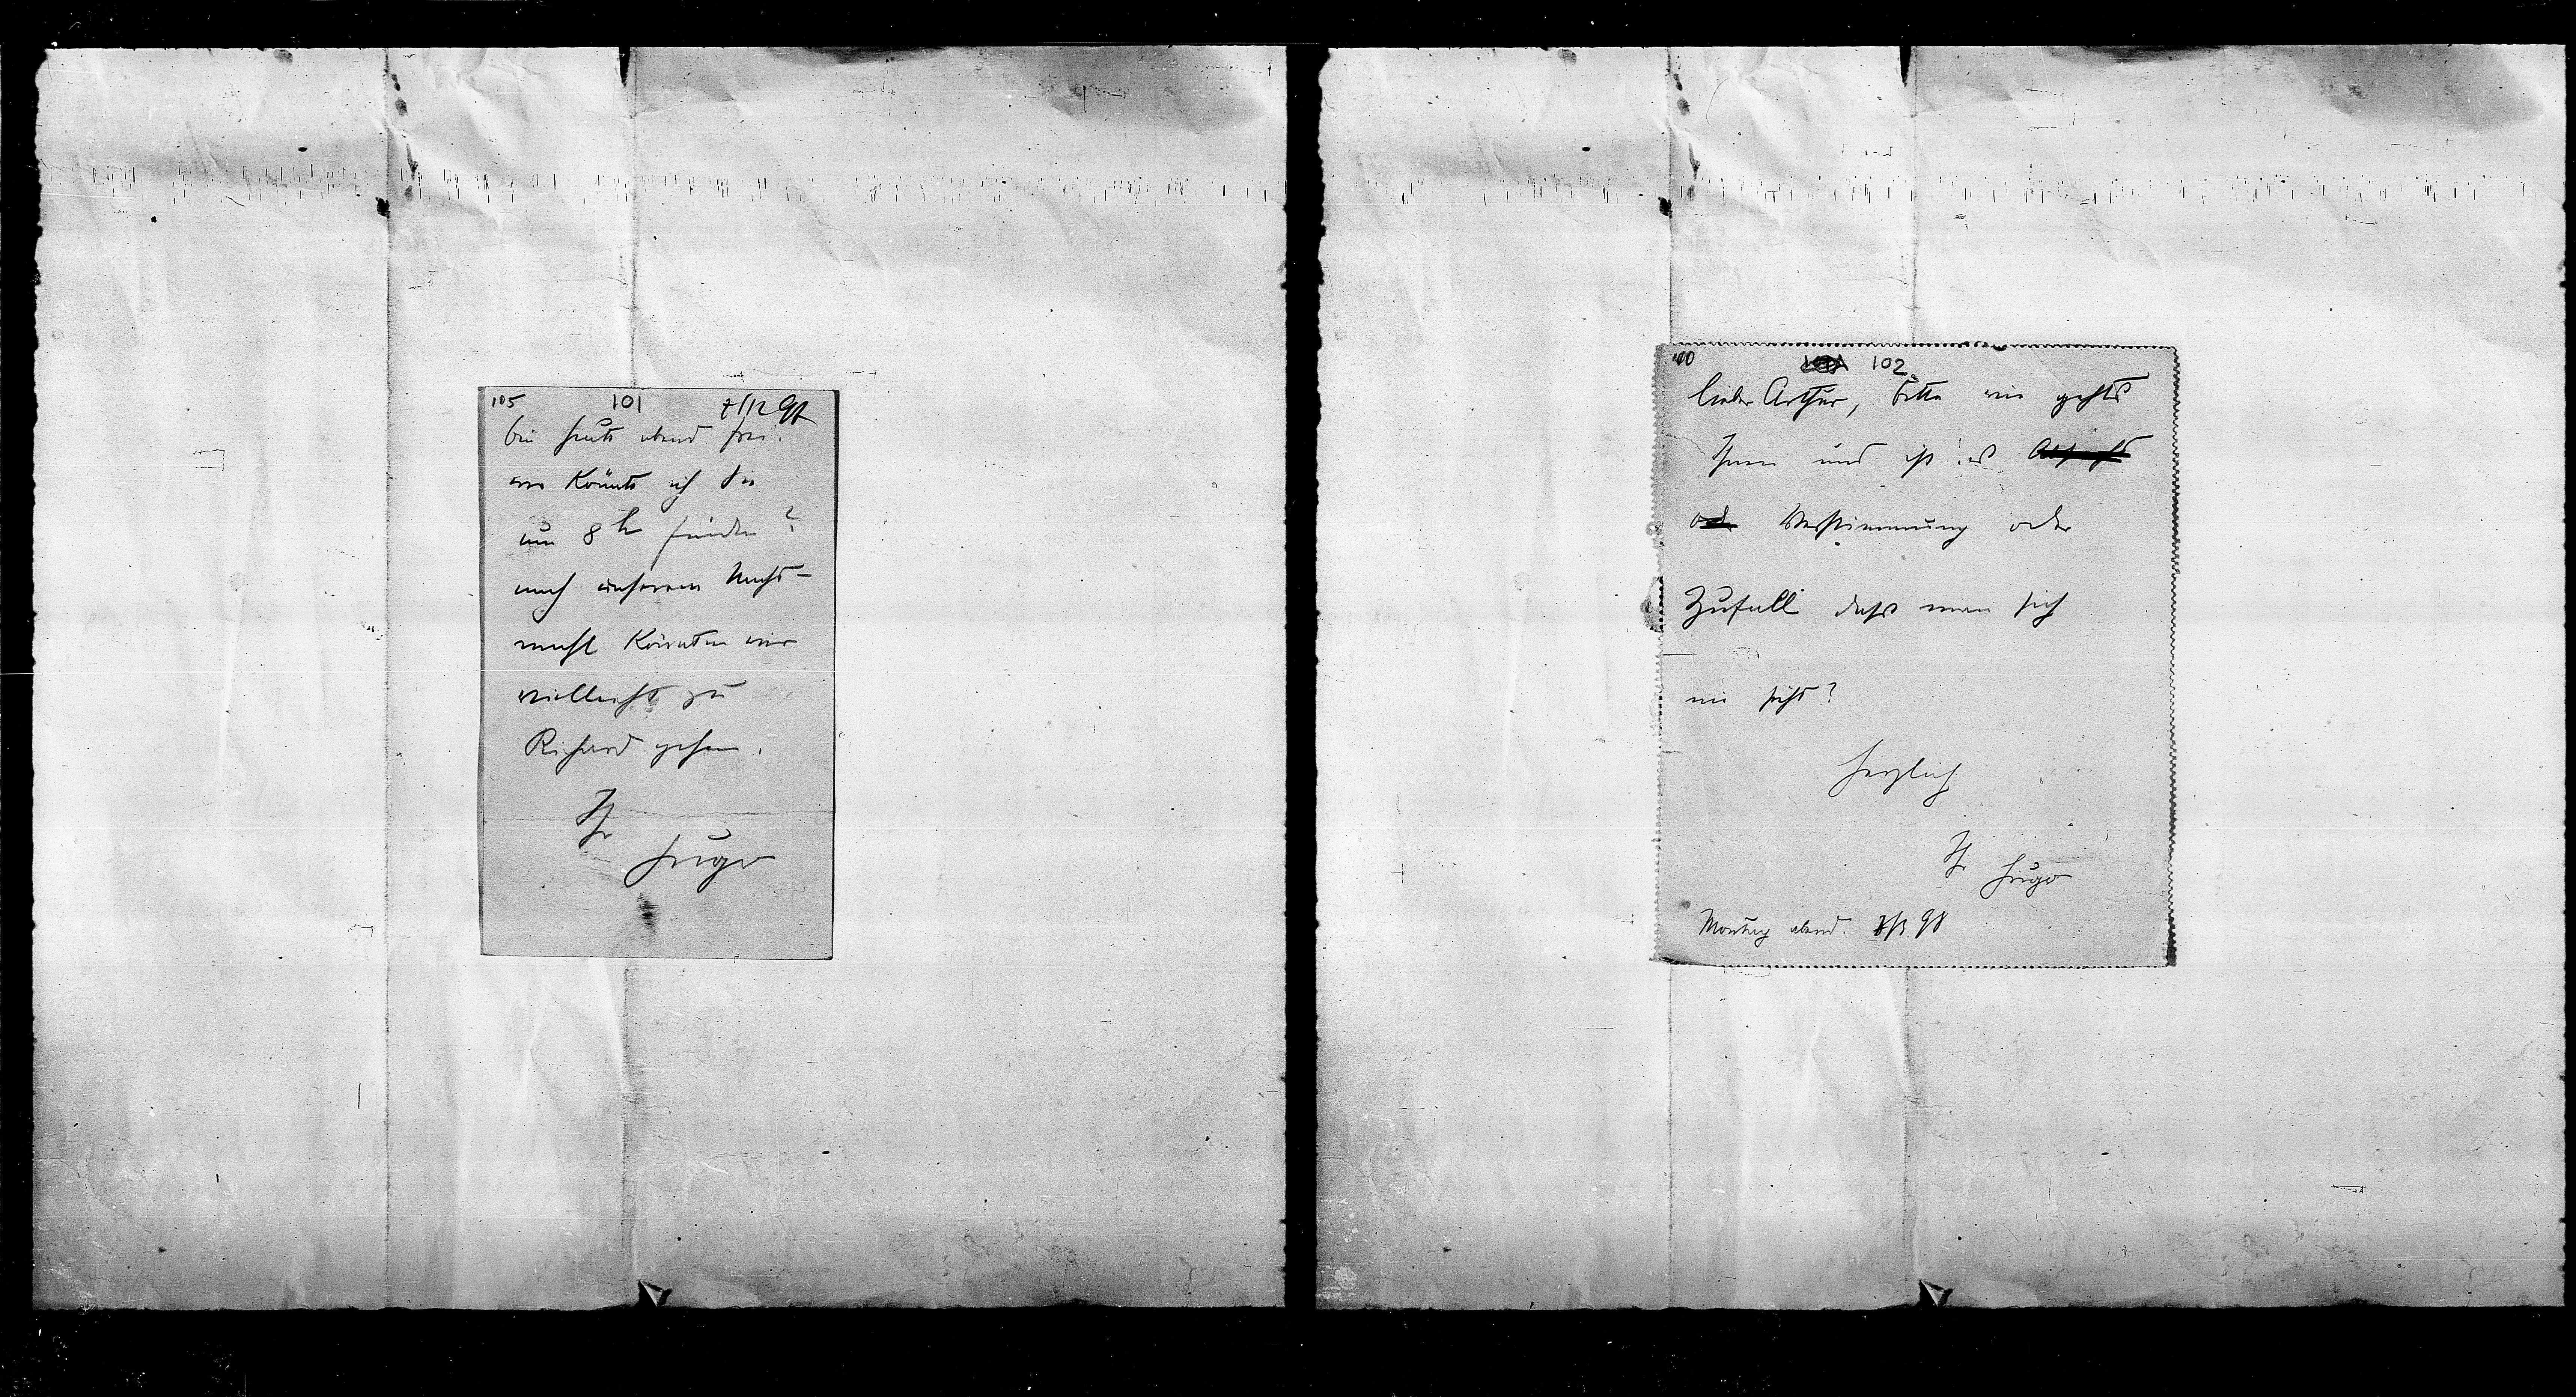 105 101 7/12 97
bin heute abend frei.
wo könnte ich Sie
um 8h finden?
nach unserem Nacht-
mahl könnten wir
vielleicht zu
Richard gehen.
Ihr
Hugo
102
lieber Arthur, bitte wie gehts
Ihnen und ist es Absicht
oder Verstimmung oder
Zufall dass man sich
nie sieht?
herzlich
Ihr Hugo
Montag abend. 98